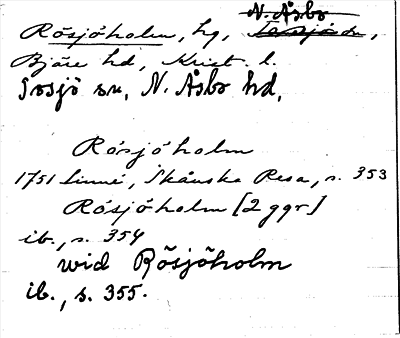 N. Åsbo
Rösjöholm, hg,
Bjäre hd, Krist. l.
Tosjö sn, N. Åsbo hd,
Rösjöholm
1751 Linné, Skånska Resa, s. 353
Rösjöholm [2 ggr]
ib., s. 354
wid Rösjöholm
ib., s. 355.